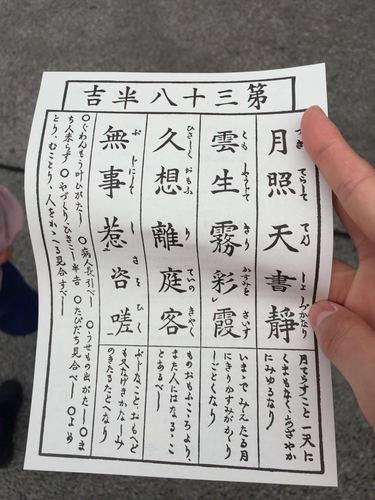 第三十八半吉
月照天書靜
つき てらして てん しよ しづかなり
月てらすこと一天に
くまもなく、
にみゆるなり
雲生霧彩霞
くも しやうじて きり かすみを さいす
いまゝでみえたる月
にきりかすみがゝり
しごとくなり
久想離庭客
ひさしく おもふ り ていの きやく
ものおもふこゝろより、
また人にはなるゝこ
とあるべし
無事惹咨嗟
ぶ じにして し さを ひく
ぶじなことをおもへど
も又なげきかなしみ
のきたるたとへなり
〇ぐわんもう叶ひがたし 〇病人長引べし 〇うせもの出がたし 〇ま
ち人来らず 〇やづくり、ひきこし半吉 〇たびだち見合べし 〇よめ
とり、むことり、人をかゝへる見合すべし